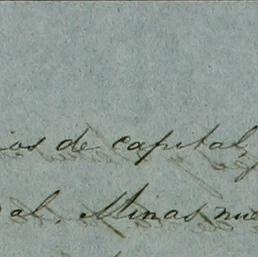 ios de capital,
al. Minas nue